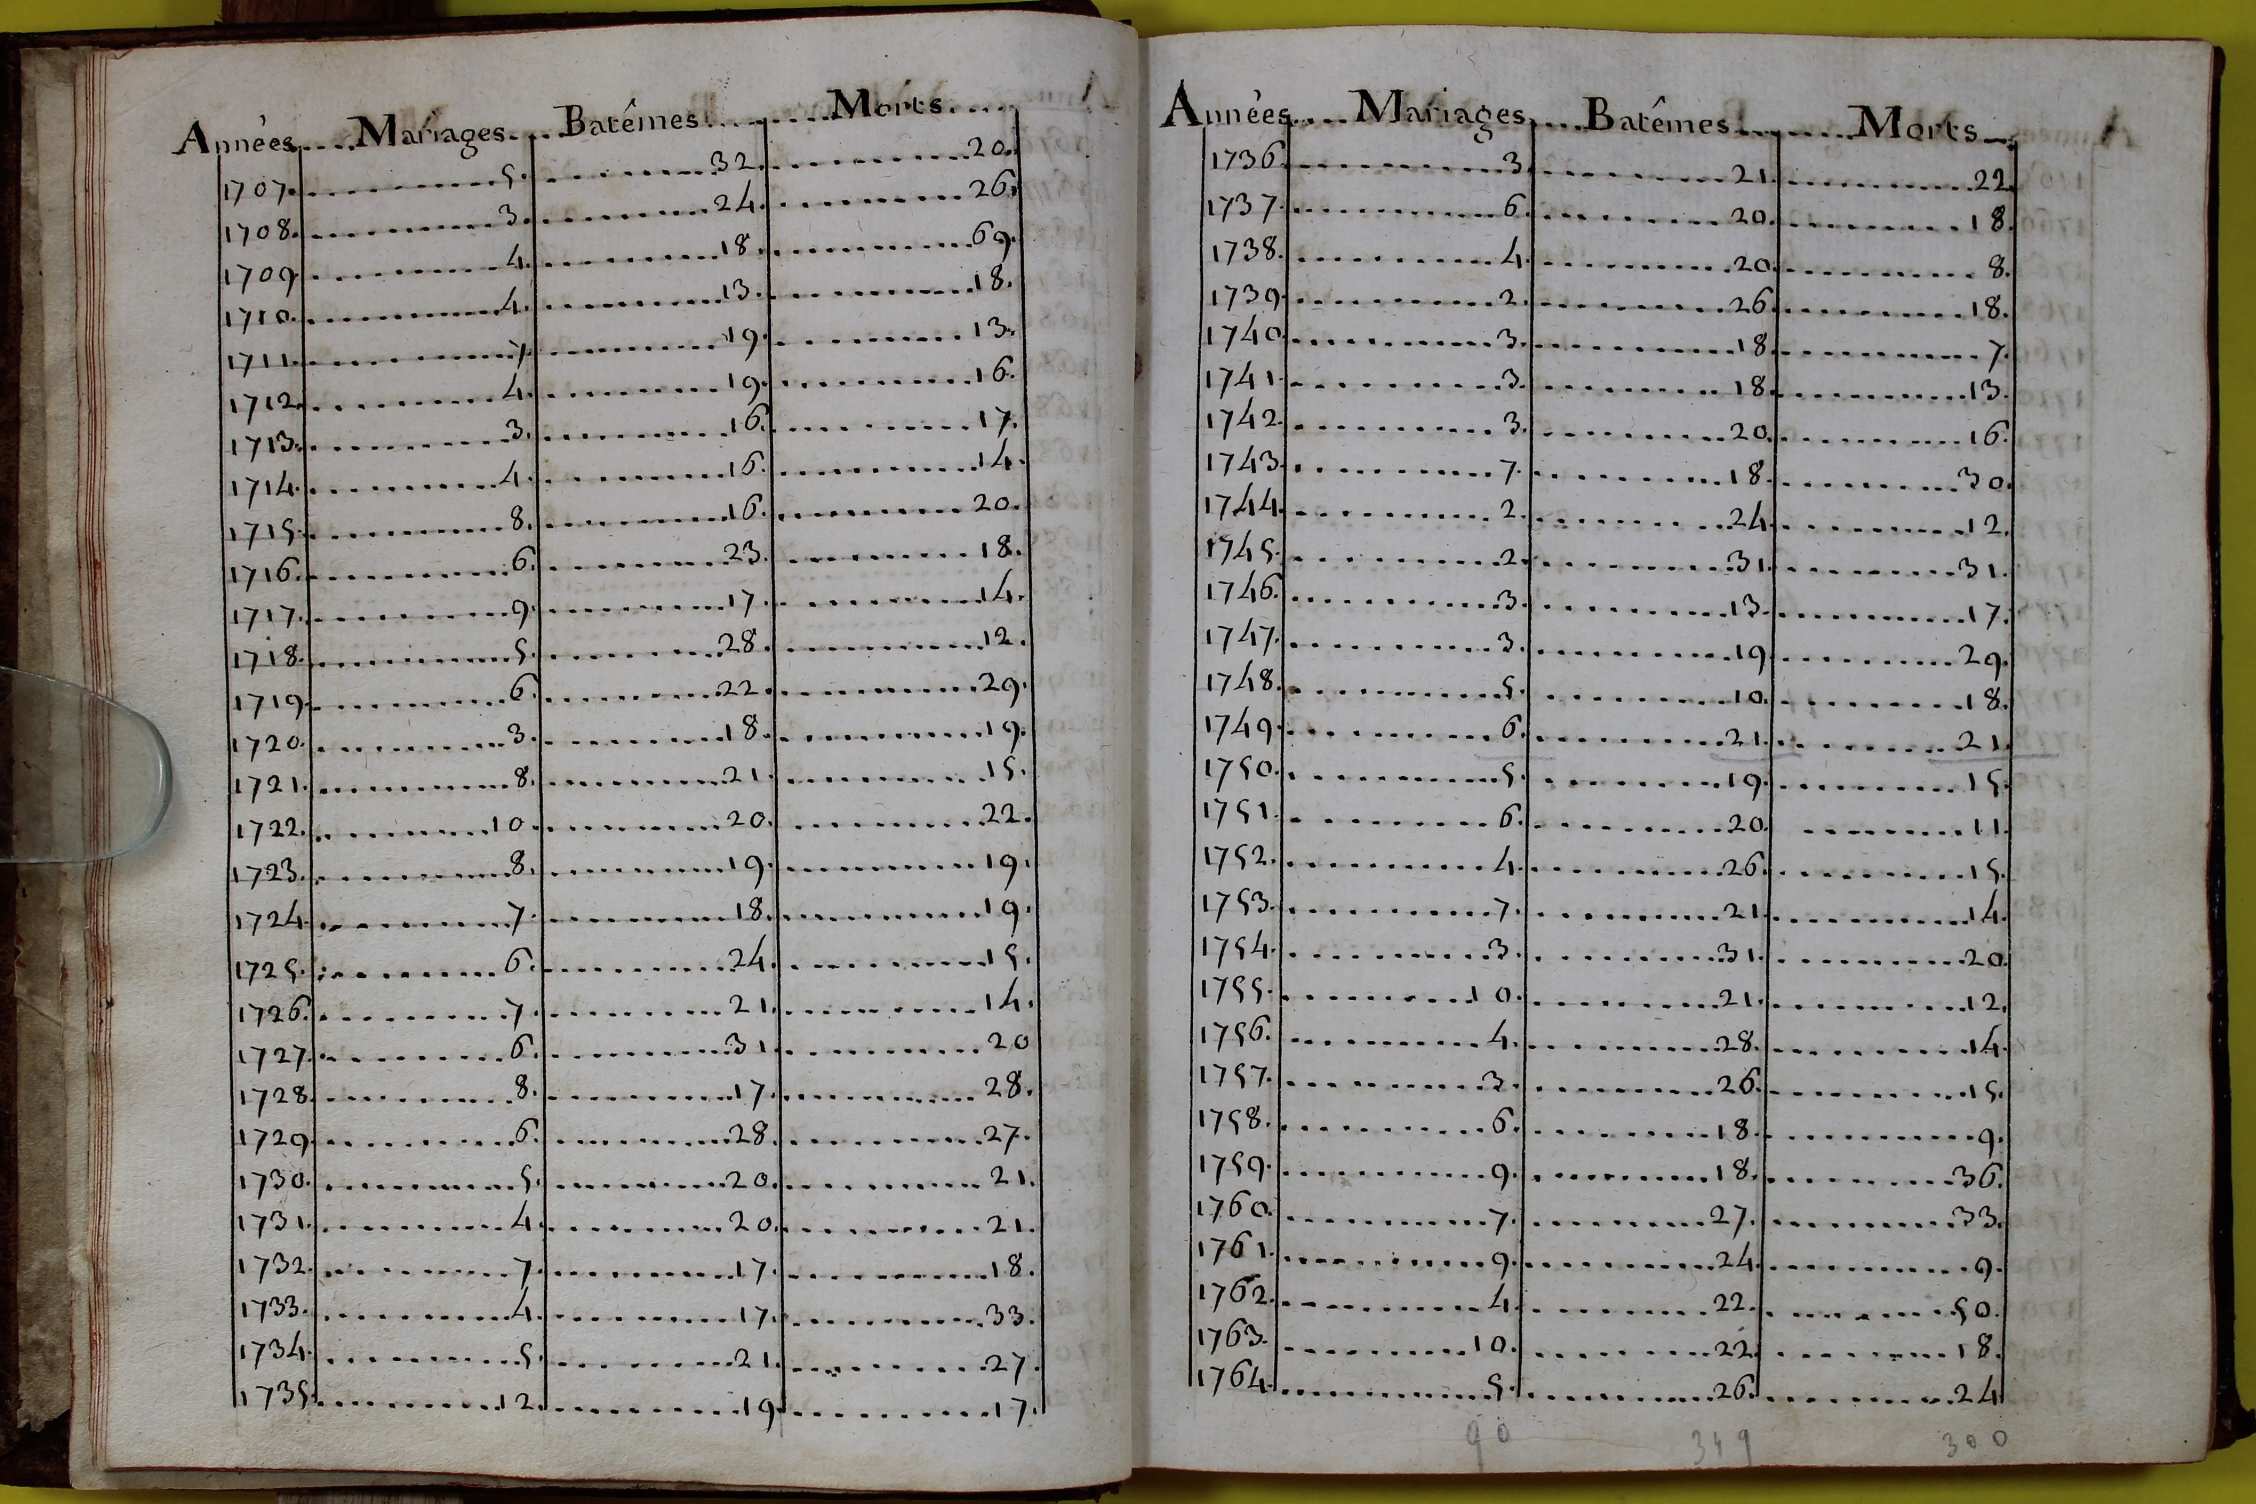 Années Mariages Batêmes Morts
1707. 5. 32. 20.
1708. 3. 24. 26.
1709 4. 18. 69.
1710. 4. 13. 18.
1711. 7. 19. 13.
1712. 4. 19. 16.
1713. 3. 16. 17.
1714. 4. 16. 14.
1715. 8. 16. 20.
1716. 6. 23. 18.
1717. 9. 17. 14.
1718. 5. 28. 12.
1719. 6. 22. 29.
1720. 3. 18. 19.
1721. 8. 21. 15.
1722. 10. 20. 22.
1723. 8. 19. 19.
1724. 7. 18. 19.
1725. 6. 24. 15.
1726. 7. 21. 14.
1727. 6. 31. 20
1728. 8. 17. 28.
1729. 6. 28. 27.
1730. 5. 20. 21.
1731. 4. 20. 21.
1732. 7. 17. 18.
1733. 4. 17. 33.
1734. 5. 21. 27.
1735. 12. 19. 17.
Années Mariages Batêmes Morts
1736. 3. 21. 22.
1737. 6. 20. 18.
1738. 4. 20. 8.
1739. 2. 26. 18.
1740. 3. 18. 7.
1741. 3. 18. 13.
1742. 3. 20. 16.
1743. 7. 18. 30.
1744. 2. 24. 12.
1745. 2. 31. 31.
1746. 3. 13. 17.
1747. 3. 19. 29.
1748. 5. 10. 18.
1749. 6. 21. 21.
1750. 5. 19. 15.
1751. 6. 20. 11.
1752. 4. 26. 15.
1753. 7. 21. 14.
1754. 3. 31. 20.
1755. 10. 21. 12.
1756. 4. 28. 14.
1757. 3. 26. 15.
1758. 6. 18. 9.
1759. 9. 18. 36.
1760. 7. 27. 33.
1761. 9. 24. 9.
1762. 4. 22. 50.
1763. 10. 22. 18.
1764. 5. 26. 24
90 349 300